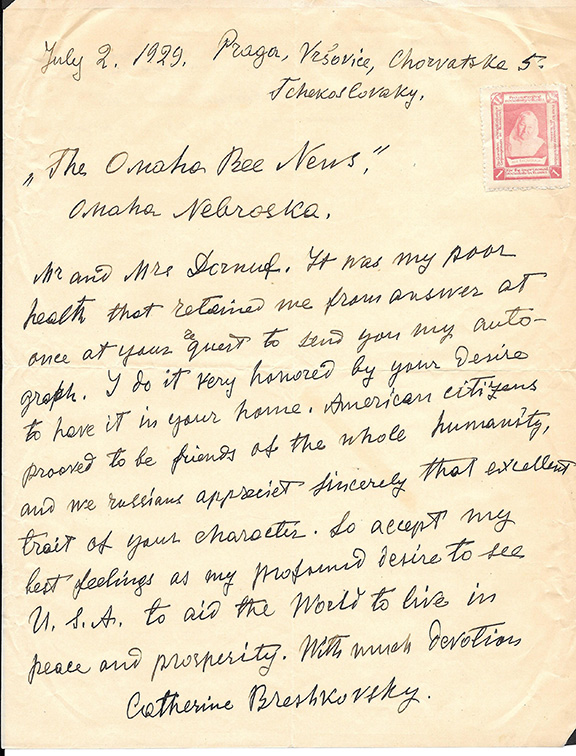 July 2. 1929. Praga, Vršovice, Chorvatska 5.
Tchekoslovaky.
„The Omaha Bee News",
Omaha Nebroska.
Mr and Mrs. It was my poor
health that retained me from answer at
once at your request to send you my auto-
graph. I do it very honored by your desire
to have it in your home. American citizens
prooved to be friends of the whole humanity,
and we russians appreciet sincerely that excellent
trait of your character. So accept my
best feelings as my profound desire to see
U. S. A. to aid the World to live in
peace and prosperity. With much devotion
Catherine Breshkovsky.